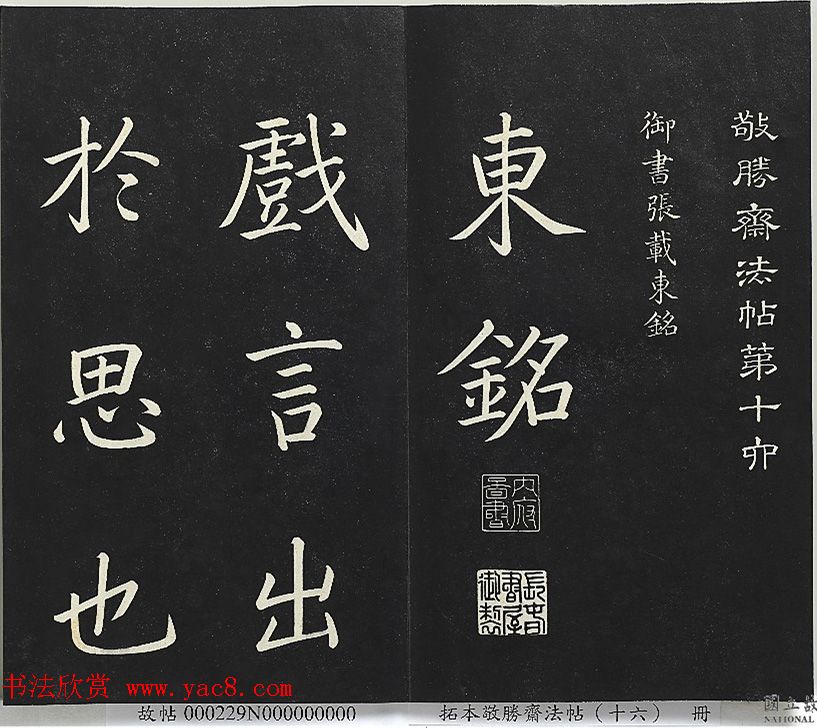 敬勝齋法帖第十六
御書張載東銘
東銘
長春書屋御製
戲言出
於思也
书法欣赏 www.yac8.com
故帖 000229N000000000
拓本敬勝齋法帖（十六） 冊
國立故
NATIONAL